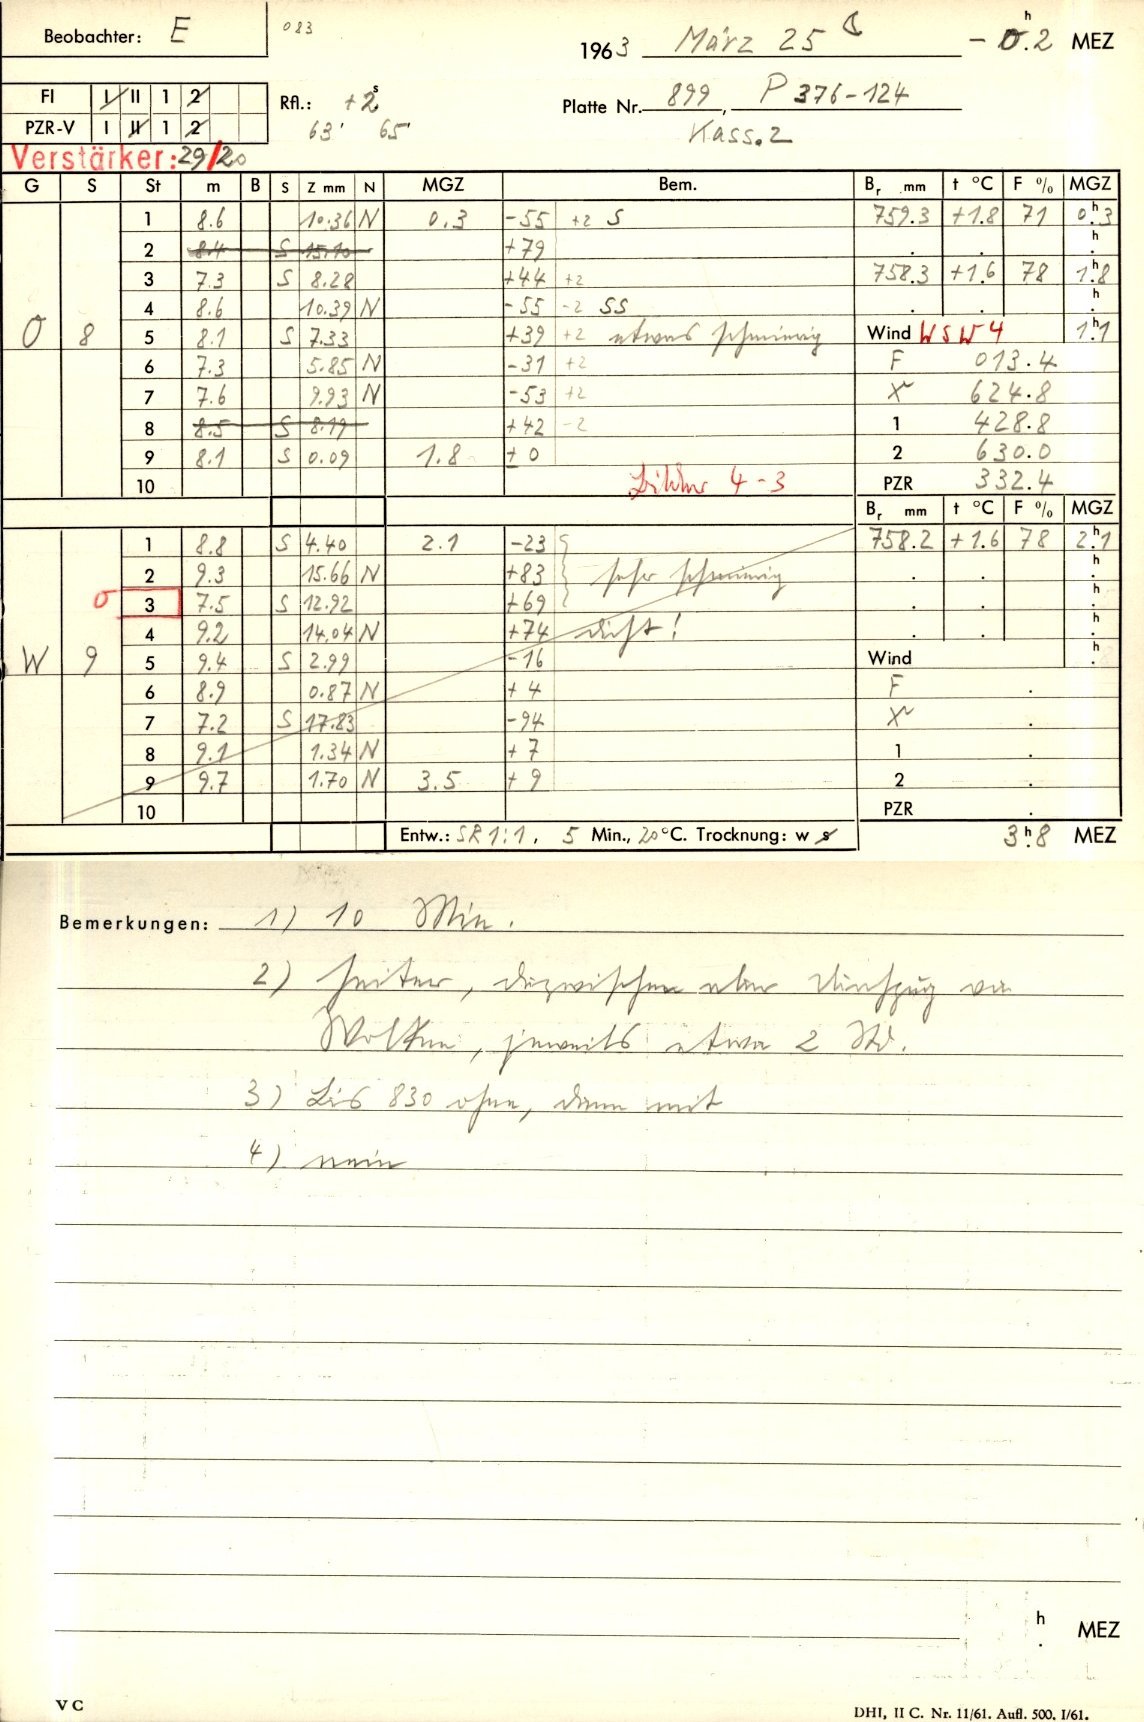 Beobachter: E 083 1963 März 25 - 0h.2 MEZ
FI I II 1 2 Rfl.: +2s Platte Nr. 899, P 376-124
PZR-V I II 1 2 63' 65' Kass. 2
Verstärker: 29/20
G S St m B S Z mm N MGZ Bem. Br mm t °C F % MGZ
1 8.6 10.36 N 0.3 -55 +2 S 759.3 +1.8 71 0h.3
2 8.4 S 15.10 +79 h.
3 7.3 S 8.28 +44 +2 758.3 +1.6 78 1h.8
4 8.6 10.39 N -55 -2 SS h.
O 8 5 8.1 S 7.33 +39 +2 etwas schmierig Wind WSW 4 1h.1
6 7.3 5.85 N -31 +2 F 013.4
7 7.6 9.93 N -53 +2 X 624.8
8 8.5 S 8.19 +42 -2 1 428.8
9 8.1 S 0.09 1.8 ± 0 2 630.0
10 Bilder 4-3 PZR 332.4
Br mm t °C F % MGZ
1 8.8 S 4.40 2.1 -23 758.2 +1.6 78 2h.1
2 9.3 15.66 N +83 sehr schmierig h.
3 7.5 S 12.92 +69 h.
4 9.2 14.04 N +74 dicht! h.
W 9 5 9.4 S 2.99 -16 Wind h.
6 8.9 0.87 N + 4 F .
7 7.2 S 17.83 -94 X .
8 9.1 1.34 N + 7 1 .
9 9.7 1.70 N 3.5 + 9 2 .
10 PZR .
Entw.: SR 1:1, 5 Min., 20°C. Trocknung: w s 3h.8 MEZ
Bemerkungen: 1) 10 Min.
2) heiter, dazwischen aber Durchzug von
Wolken, jeweils etwa 2 Std.
3) Bis 830 ohne, dann mit
4) nein
h. MEZ
V C
DHI, II C. Nr. 11/61. Aufl. 500. I/61.